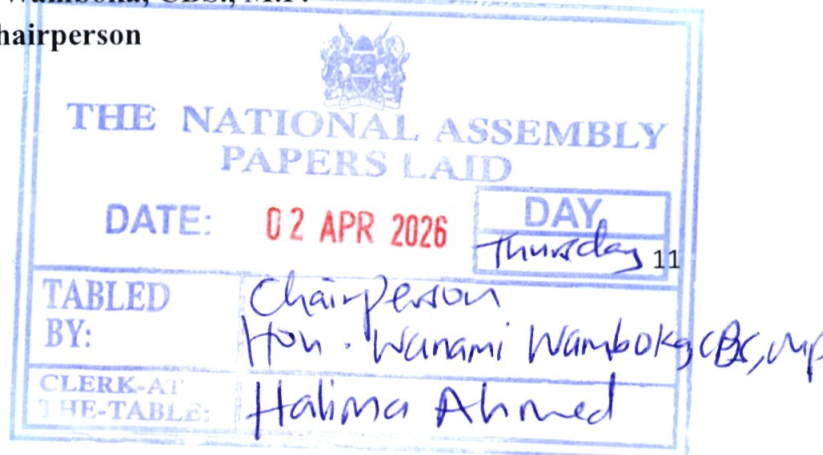 Wamboka, CBSt., M.P.
hairperson
THE NATIONAL ASSEMBLY
PAPERS LAID
DATE: 02 APR 2026
DAY
Thursday
11
TABLED BY:
Chairperson
Hon. Wanami Wamboka, CBS, MP
CLERK-AT THE-TABLE:
Halima Ahmed